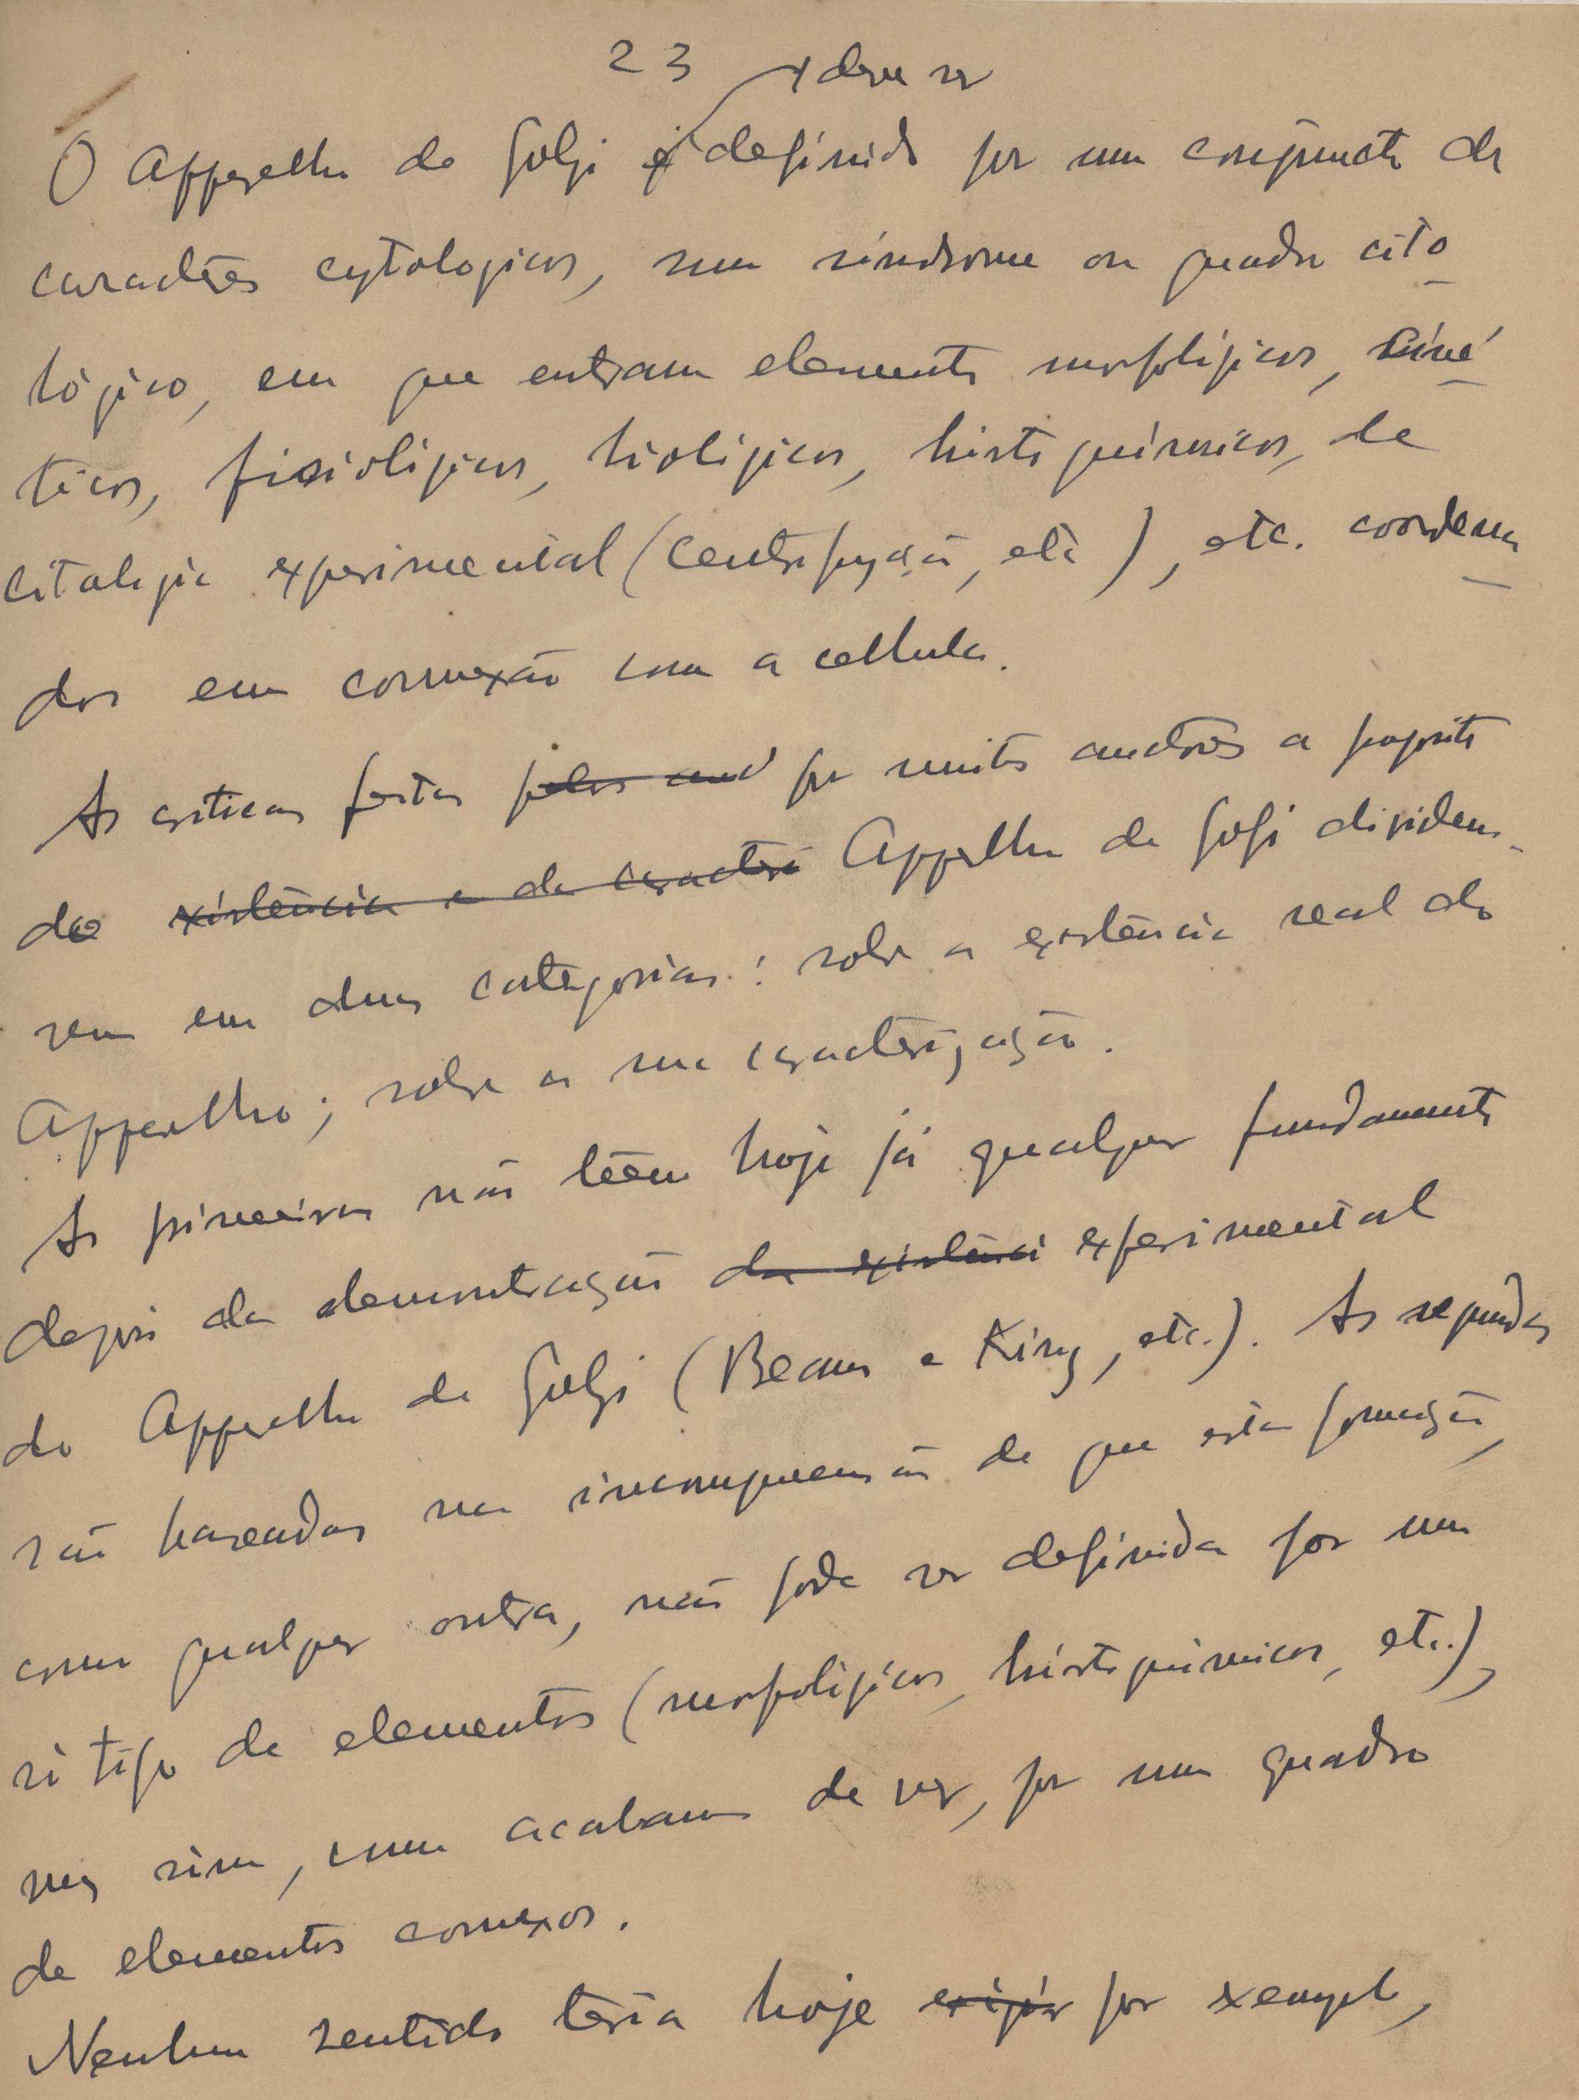 23
deve ser
O Apparelho de Golgi é definido por um conjuncto de
caractéres cytologicos, num síndrome ou quadro cito
lógico, em que entram elementos morfológicos, ciné
ticos, fisiológicos, biológicos, histoquímicos, de
citologia experimental (centrifugação, etc), etc. coordena
dos em connexão com a cellula.
As criticas feitas pelos aud por muitos auctores a proposito
do existência e da caracteri Apparelho de Golgi dividem-
sem em duas categorias: sobre a existência real do
Apparelho; sobre a sua caracterização.
As primeiras não têem hoje já qualquer fundamento
depois da demonstração da existênci experimental
do Apparelho de Golgi (Beams e King, etc.). As segundas
são baseadas na incompreensão de que esta formação,
como qualquer outra, não pode ser definida por um
só tipo de elementos (morfológicos, histoquímicos, etc.),
mas sim, como acabamos de ver, por um quadro
de elementos connexos.
Nenhum sentido teria hoje exigir por exemplo,